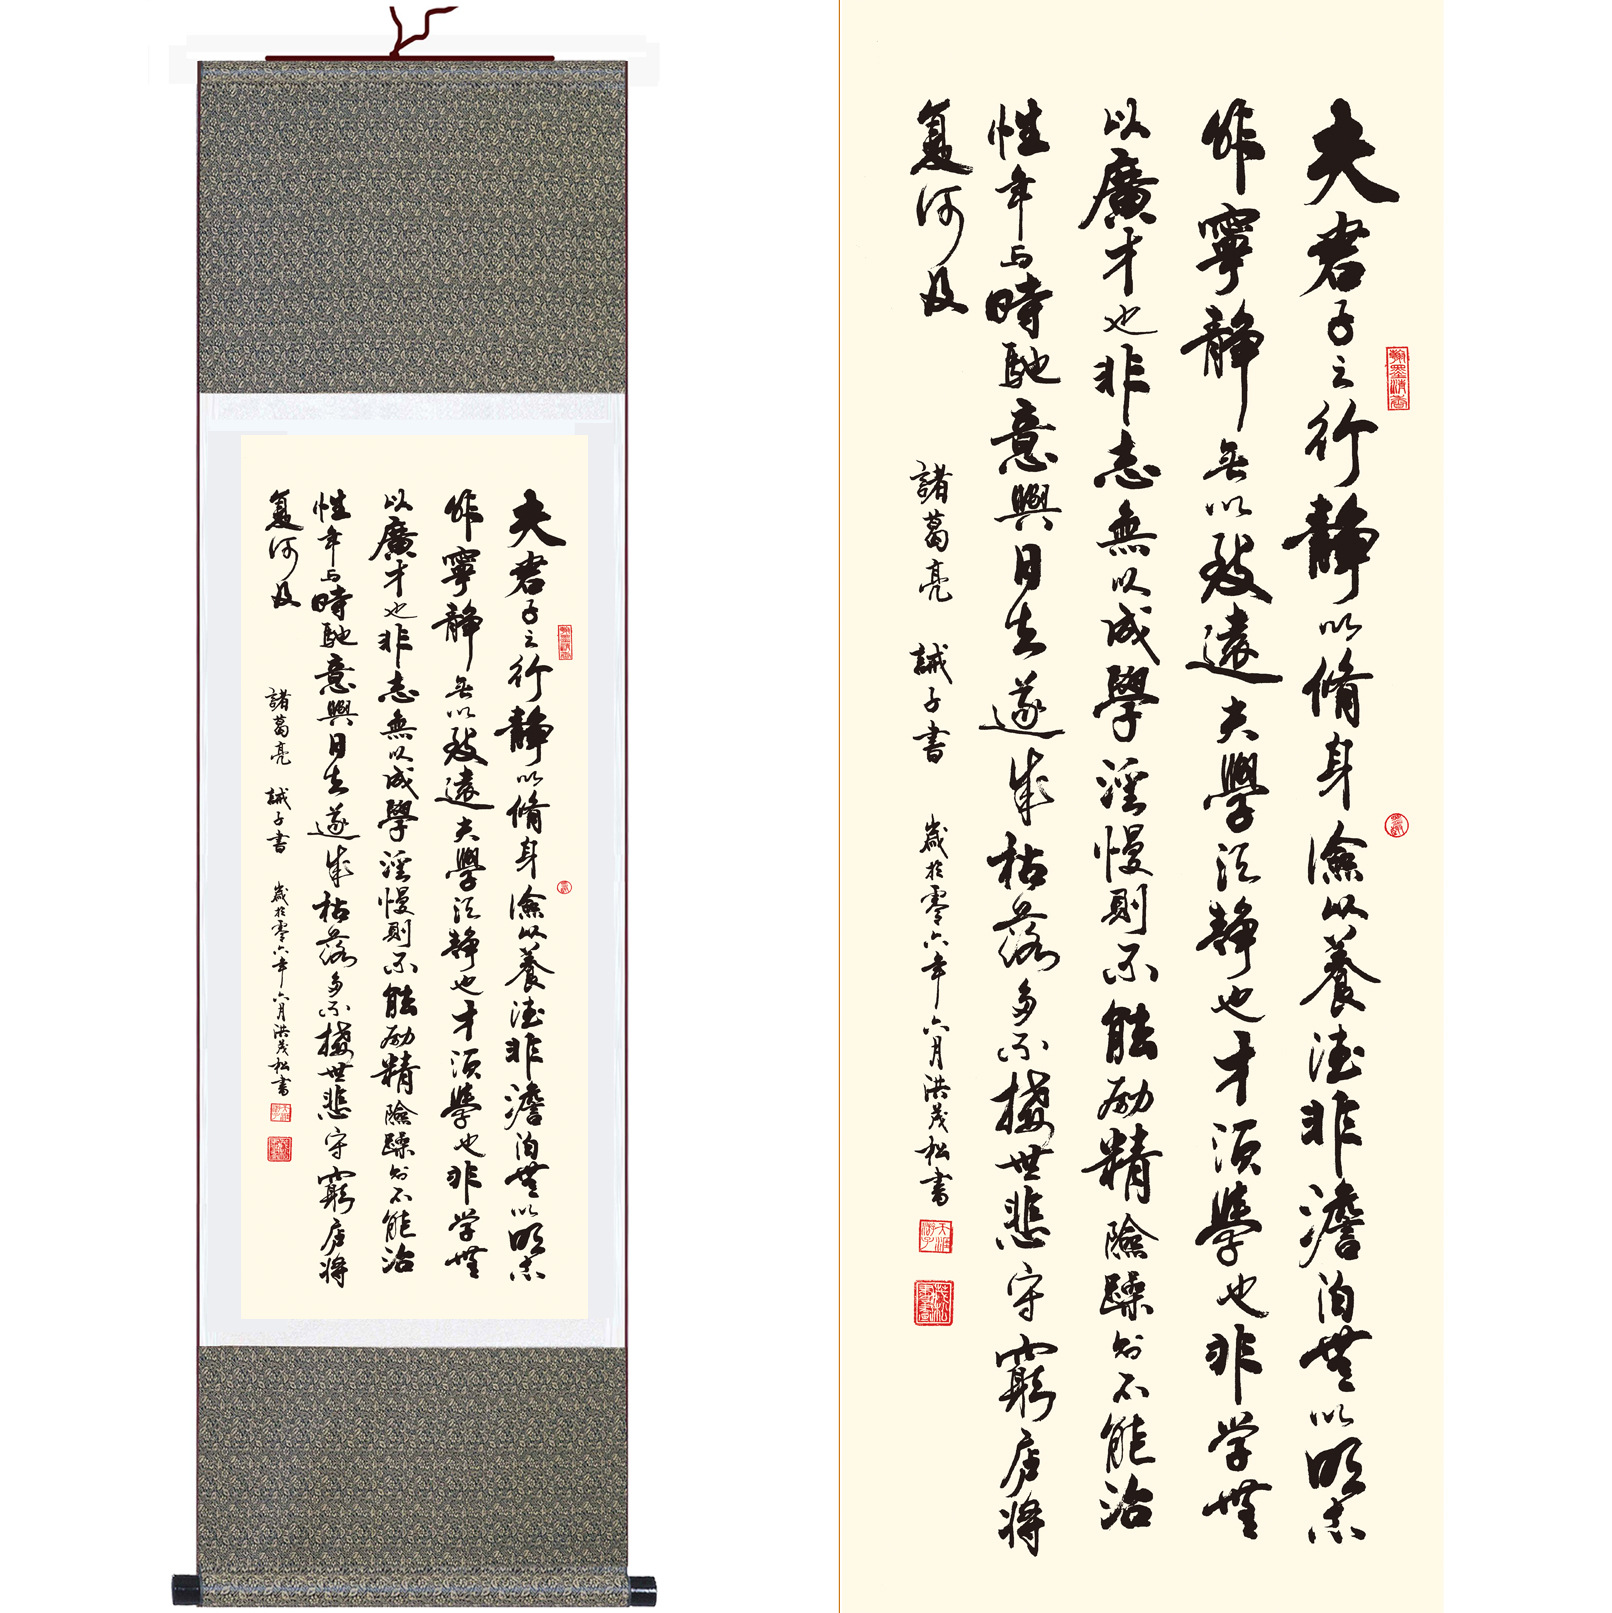 夫君子之行静以脩身儉以養德非澹泊無以明志
非寧静無以致遠夫學須静也才須學也非学無
以廣才也非志無以成學淫慢則不能励精險躁則不能治
性年与時馳意與日去遂成枯落多不接世悲守窮庐將
复何及
諸葛亮 誡子書 歲於零六年六月洪茂松書
翰墨清香
夫君子之行静以脩身儉以養德非澹泊無以明志
非寧静無以致遠夫學須静也才須學也非学無
以廣才也非志無以成學淫慢則不能励精險躁則不能治
性年与時馳意與日去遂成枯落多不接世悲守窮庐將
复何及
諸葛亮 誡子書 歲於零六年六月洪茂松書
翰墨清香
天涯游子